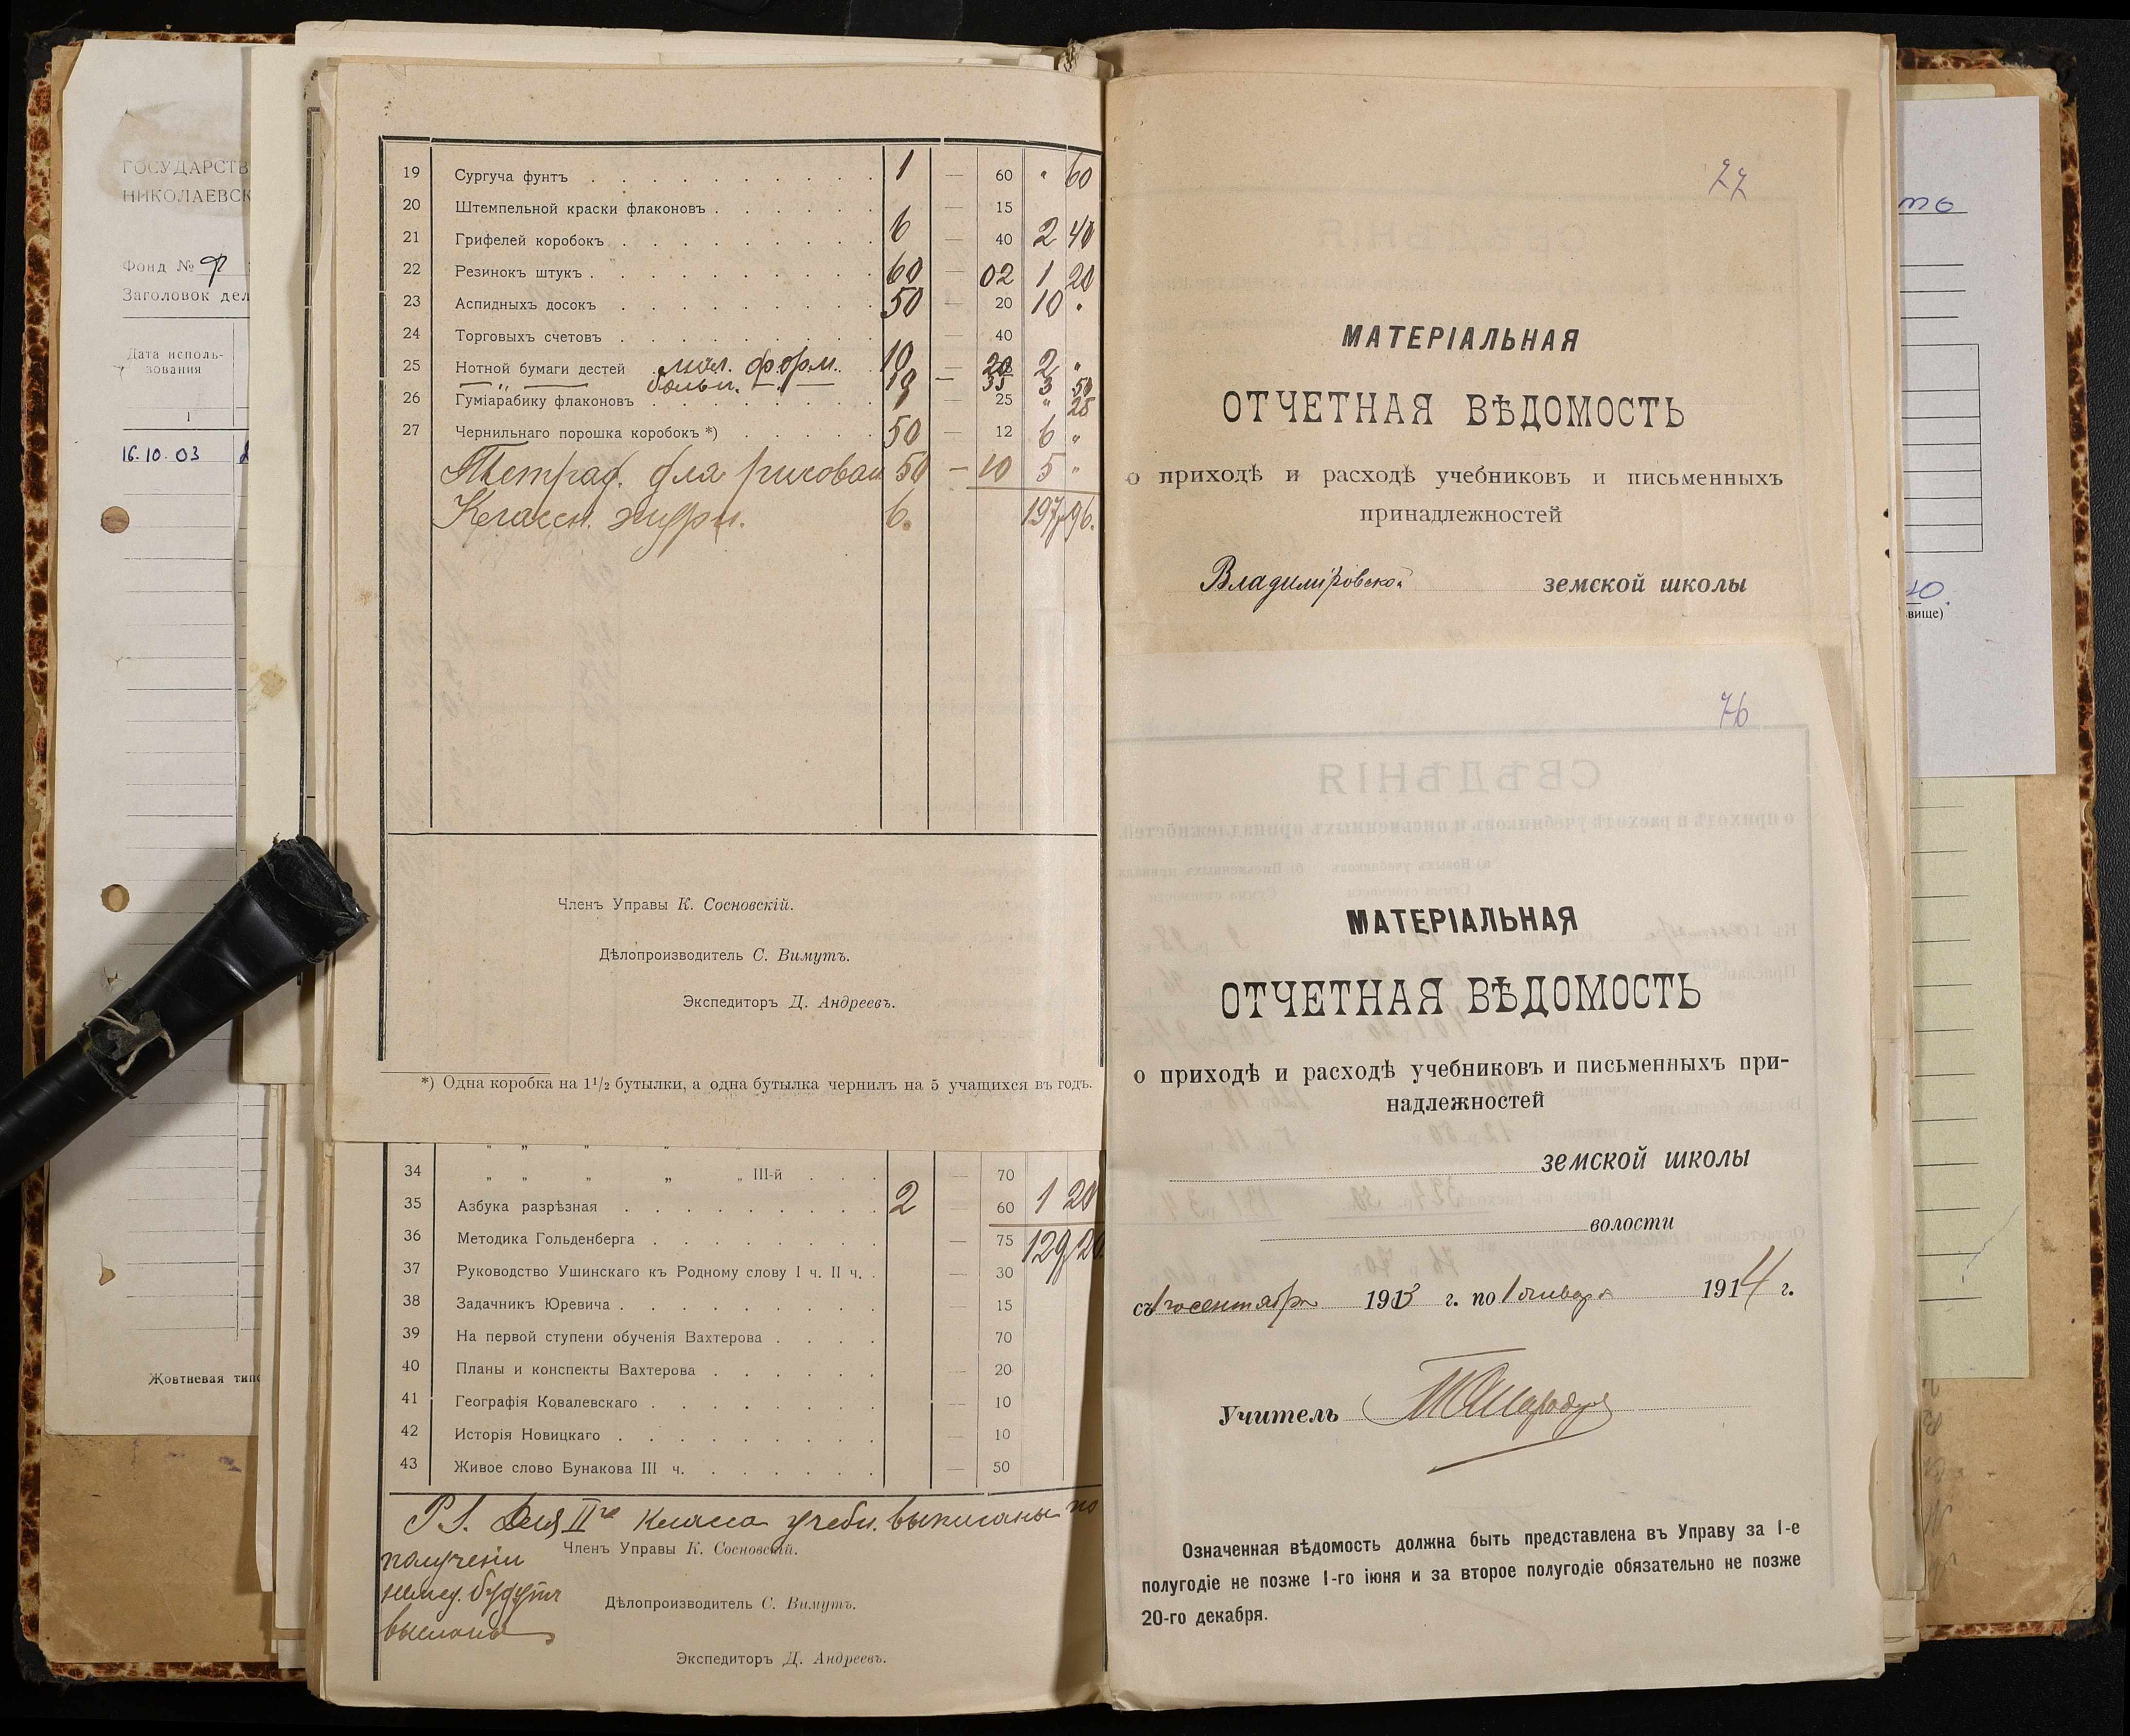 ГОСУДАРСТВ
НИКОЛАЕВСК
Фонд № Ф
Заголовок дел
Дата исполь-
зования
1
16.10.03
Жовтневая типо
19 Сургуча фунтъ 1 — 60 " 60
20 Штемпельной краски флаконовъ — 15
21 Грифелей коробокъ 6 — 40 2 40
22 Резинокъ штукъ 60 — 02 1 20
23 Аспидныхъ досокъ 50 — 20 10 "
24 Торговыхъ счетовъ — 40
25 Нотной бумаги дестей мал. форм. 10 — 20 2 "
— " — больш. — " — 10 — 35 3 50
26 Гуміарабику флаконовъ 1 — 25 " 25
27 Чернильнаго порошка коробокъ *) 50 — 12 6 "
Тетрад. для рисован 50 — 10 5 "
Классн. журн. 6. 197 96.
Членъ Управы К. Сосновскій.
Дѣлопроизводитель С. Вимутъ.
Экспедиторъ Д. Андреевъ.
*) Одна коробка на 1 1/2 бутылки, а одна бутылка чернилъ на 5 учащихся въ годъ.
34 " " " " " III-й 70
35 Азбука разрѣзная 2 — 60 1 20
36 Методика Гольденберга — 75 129 20
37 Руководство Ушинскаго къ Родному слову I ч. II ч. — 30
38 Задачникъ Юревича — 15
39 На первой ступени обученія Вахтерова 70
40 Планы и конспекты Вахтерова — 20
41 Географія Ковалевскаго — 10
42 Исторія Новицкаго — 10
43 Живое слово Бунакова III ч. — 50
P.S. Для II го класса учебн. выписаны по
получении
немед. будутъ
высланы
Членъ Управы К. Сосновскій.
Дѣлопроизводитель С. Вимутъ.
Экспедиторъ Д. Андреевъ.
77
МАТЕРІАЛЬНАЯ
ОТЧЕТНАЯ ВѢДОМОСТЬ
о приходѣ и расходѣ учебниковъ и письменныхъ
принадлежностей
Владиміровской земской школы
76
МАТЕРІАЛЬНАЯ
ОТЧЕТНАЯ ВѢДОМОСТЬ
о приходѣ и расходѣ учебниковъ и письменныхъ при-
надлежностей
земской школы
волости
съ 1го сентября 1913 г. по 1 января 1914 г.
Учитель
Означенная вѣдомость должна быть представлена въ Управу за I-е
полугодіе не позже 1-го іюня и за второе полугодіе обязательно не позже
20-го декабря.
вище)